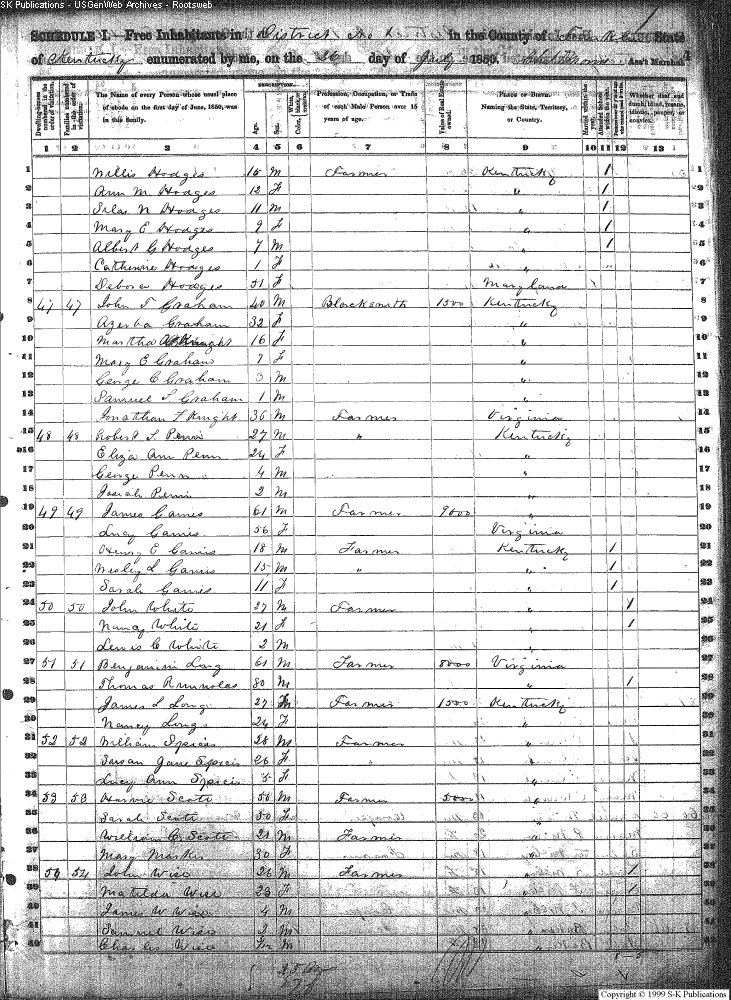 SK Publications - USGenWeb Archives - Rootsweb
SCHEDULE I.—Free Inhabitants in District No in the County of State
of Kentucky enumerated by me, on the 26 day of July 1850. Ass't Marshal
Dwelling-houses numbered in the order of visitation.
Families numbered in the order of visitation.
The Name of every Person whose usual place of abode on the first day of June, 1850, was in this family.
DESCRIPTION.
Age.
Sex.
White, black, or mulatto.
Profession, Occupation, or Trade of each Male Person over 15 years of age.
Value of Real Estate owned.
PLACE OF BIRTH. Naming the State, Territory, or Country.
Married within the year.
Attended School within the year.
Whether deaf and dumb, blind, insane, idiotic, pauper, or convict.
1 2 3 4 5 6 7 8 9 10 11 12 13
1 Willis Hodges 15 M Farmer Kentucky / 1
2 Ann M Hodges 12 F " / 2
3 Silas N Hodges 11 M " / 3
4 Mary E Hodges 9 F " / 4
5 Albert G Hodges 7 M " / 5
6 Catherine Hodges 1 F " 6
7 Debora Hodges 51 F Maryland 7
8 47 47 John T Graham 40 M Blacksmith 1500 Kentucky 8
9 Graham 32 F " 9
10 Martha Knight 16 F " 10
11 Mary E Graham 7 F " 11
12 George C Graham 3 M " 12
13 Samuel T Graham 1 M " 13
14 Jonathan F Knight 36 M Farmer Virginia 14
15 48 48 Robert S Penn 27 M " Kentucky 15
16 Eliza Ann Penn 24 F " 16
17 George Penn 4 M " 17
18 Josiah Penn 2 M " 18
19 49 49 James Gaines 61 M Farmer 9000 " 19
20 Lucy Gaines 56 F Virginia 20
21 Henry E Gaines 18 M Farmer Kentucky / 21
22 Wesley L Gaines 15 M " " / 22
23 Sarah Gaines 11 F " / 23
24 50 50 John White 27 M Farmer " / 24
25 Nancy White 21 F " / 25
26 Lewis C White 2 M " 26
27 51 51 Benjamin Long 61 M Farmer 8000 Virginia 27
28 Thomas 80 M " / 28
29 James L Long 27 M Farmer 1500 Kentucky 29
30 Nancy Long 24 F " 30
31 52 52 William 28 M Farmer " 31
32 Susan Jane 26 F " 32
33 Lucy Ann 5 F " 33
34 53 53 Scott 58 M Farmer 5000 " 34
35 Sarah Scott 50 F " 35
36 William C Scott 21 M Farmer " 36
37 Mary 30 F " 37
38 54 54 John Wise 26 M Farmer " / 38
39 Matilda Wise 23 F " / 39
40 James W Wise 4 M " 40
41 Samuel Wise 2 M " 41
42 Charles Wise M " 42
Copyright © 1999 S-K Publications